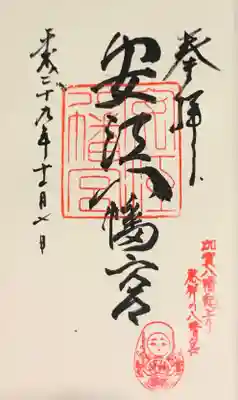 奉拝
加賀八幡起上り
発祥の八幡宮
安江八幡宮
平成二十九年十一月七日